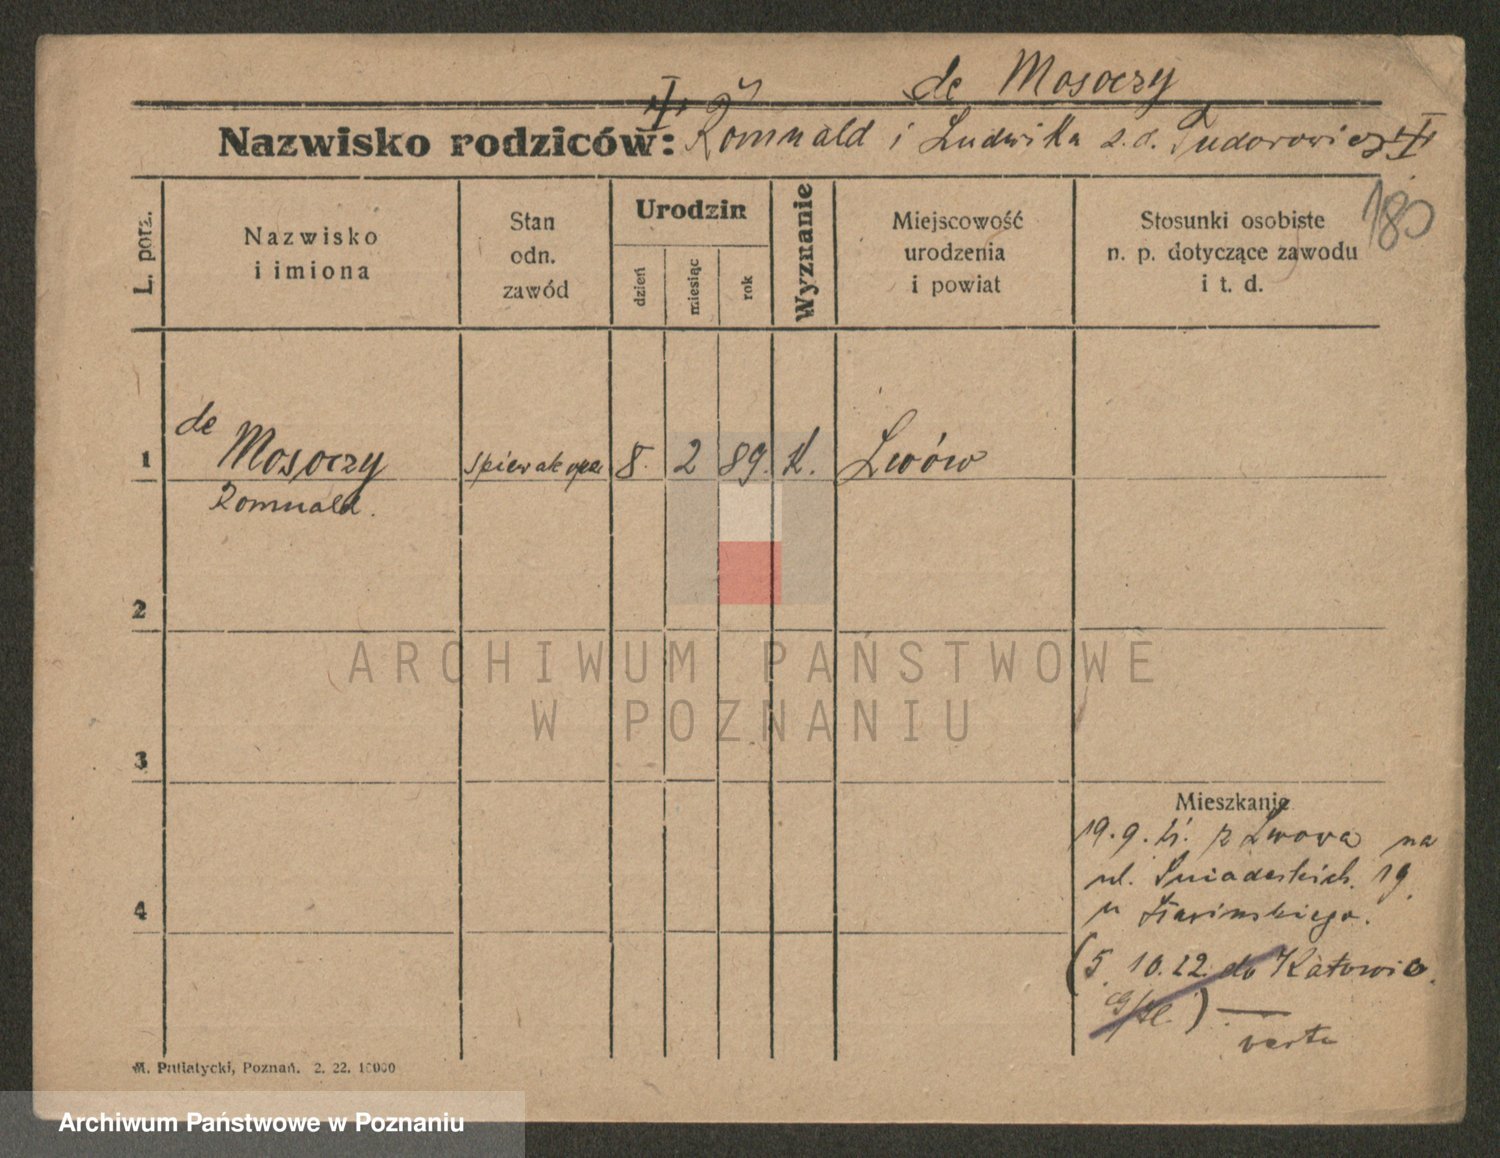 de Mosoczy
Nazwisko rodziców: Romuald i Ludwika z. d.
180
L. porz.
Nazwisko
i imiona
Stan
odn.
zawód
Urodzin
dzień
miesiąc
rok
Wyznanie
Miejscowość
urodzenia
i powiat
Stosunki osobiste
n. p. dotyczące zawodu
i t. d.
de
1 Mosoczy śpiewak oper 8. 2 89. k. Lwów
Romuald.
2
ARCHIWUM PAŃSTWOWE
W POZNANIU
3
Mieszkanie
19. 9. z Lwowa na
ul. Śniadeckich. 19
4
u
(5 10.22. do Katowic
G/Śl.) —
verte
M. Putiatycki, Poznań. 2. 22. 10000
Archiwum Państwowe w Poznaniu